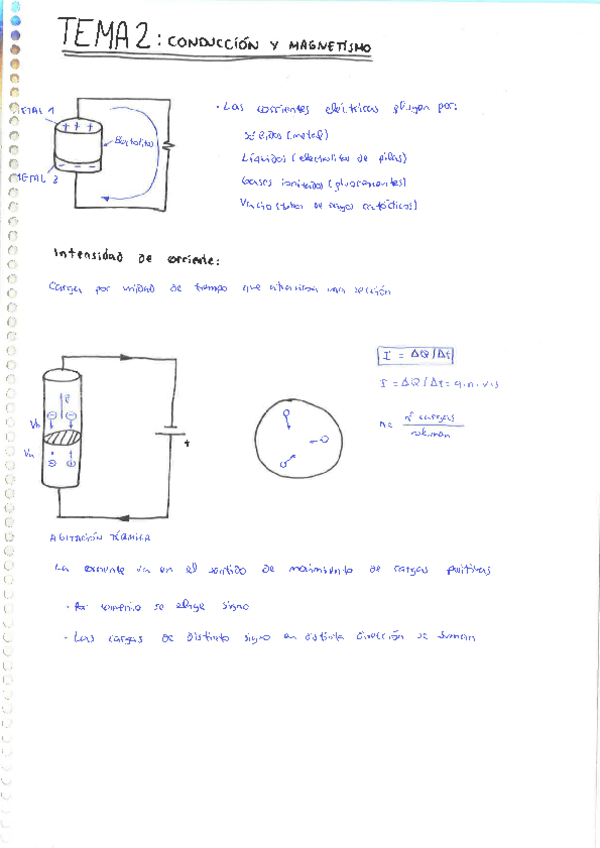 TEMA 2: CONDUCCIÓN Y MAGNETISMO
METAL 1
+ + +
METAL 2
- -
· Las corrientes eléctricas fluyen por:
sólidos (metal)
Líquidos (electrolitos de pilas)
Gases ionizados (fluorescentes)
Vacío (tubos de rayos catódicos)
Intensidad de corriente:
Carga por unidad de tiempo que atraviesa una sección
I = ΔQ/Δt
I = ΔQ/Δt = q.n.v.s
n = nº cargas
volumen
+
AGITACIÓN TÉRMICA
La corriente va en el sentido de movimiento de cargas positivas
· Por convenio se elige signo
· Las cargas de distinto signo en distinta dirección se suman